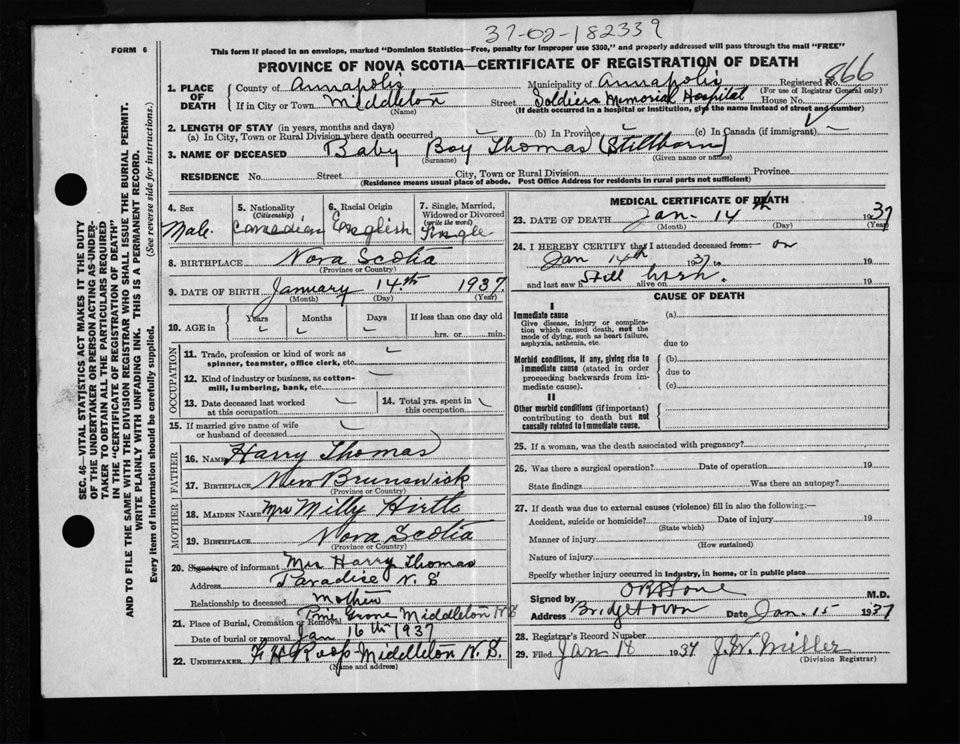 37-02-182339
FORM 6
This form if placed in an envelope, marked "Dominion Statistics—Free, penalty for improper use $300," and properly addressed will pass through the mail "FREE"
PROVINCE OF NOVA SCOTIA—CERTIFICATE OF REGISTRATION OF DEATH
SEC. 46—VITAL STATISTICS ACT MAKES IT THE DUTY
OF THE UNDERTAKER OR PERSON ACTING AS UNDER-
TAKER TO OBTAIN ALL THE PARTICULARS REQUIRED
IN THE "CERTIFICATE OF REGISTRATION OF DEATH"
AND TO FILE THE SAME WITH THE DIVISION REGISTRAR WHO SHALL ISSUE THE BURIAL PERMIT.
WRITE PLAINLY WITH UNFADING INK. THIS IS A PERMANENT RECORD.
Every item of information should be carefully supplied. (See reverse side for instructions.)
1. PLACE OF DEATH County of Annapolis Municipality of Annapolis Registered No. 866
(For use of Registrar General only)
If in City or Town Middleton Street Soldiers Memorial Hospital House No.
(Name) (If death occurred in a hospital or institution, give the name instead of street and number)
2. LENGTH OF STAY (in years, months and days)
(a) In City, Town or Rural Division where death occurred — (b) In Province — (c) In Canada (if immigrant) —
3. NAME OF DECEASED Baby Boy Thomas (Stillborn)
(Surname) (Given name or names)
RESIDENCE No. Street City, Town or Rural Division Province
(Residence means usual place of abode. Post Office Address for residents in rural parts not sufficient)
4. Sex 5. Nationality (Citizenship) 6. Racial Origin 7. Single, Married, Widowed or Divorced (write the word)
Male Canadian English Single
8. BIRTHPLACE Nova Scotia
(Province or Country)
9. DATE OF BIRTH January 14th 1937
(Month) (Day) (Year)
10. AGE in Years Months Days If less than one day old
hrs. or min.
OCCUPATION
11. Trade, profession or kind of work as
spinner, teamster, office clerk, etc. —
12. Kind of industry or business, as cotton-
mill, lumbering, bank, etc. —
13. Date deceased last worked
at this occupation —
14. Total yrs. spent in
this occupation
15. If married give name of wife
or husband of deceased —
FATHER
16. Name Harry Thomas
17. BIRTHPLACE New Brunswick
(Province or Country)
MOTHER
18. MAIDEN NAME Mrs Milly Hirtle
19. BIRTHPLACE Nova Scotia
(Province or Country)
20. Signature of informant Mrs Harry Thomas
Address Paradise N.S
Relationship to deceased Mother
21. Place of Burial, Cremation or Removal Pine Grove Middleton N.S
Date of burial or removal Jan 16th 1937
22. UNDERTAKER F H Roop Middleton N.S.
(Name and address)
MEDICAL CERTIFICATE OF DEATH
23. DATE OF DEATH Jan. 14th 1937
(Month) (Day) (Year)
24. I HEREBY CERTIFY that I attended deceased from: on
Jan 14th 1937 to 19
and last saw h Still birth. alive on 19
CAUSE OF DEATH
I
Immediate cause (a)
Give disease, injury or complica-
tion which caused death, not the
mode of dying, such as heart failure,
asphyxia, asthenia, etc. due to
Morbid conditions, if any, giving rise to (b)
immediate cause (stated in order due to
proceeding backwards from im-
mediate cause). (c)
II
Other morbid conditions (if important)
contributing to death but not
causally related to immediate cause.
25. If a woman, was the death associated with pregnancy?
26. Was there a surgical operation? Date of operation 19
State findings Was there an autopsy?
27. If death was due to external causes (violence) fill in also the following:—
Accident, suicide or homicide? Date of injury 19
(State which)
Manner of injury
(How sustained)
Nature of injury
Specify whether injury occurred in industry, in home, or in public place
Signed by M.D.
Address Bridgetown Date Jan. 15 1937
28. Registrar's Record Number
29. Filed Jan 18 1937 J.W. Miller
(Division Registrar)